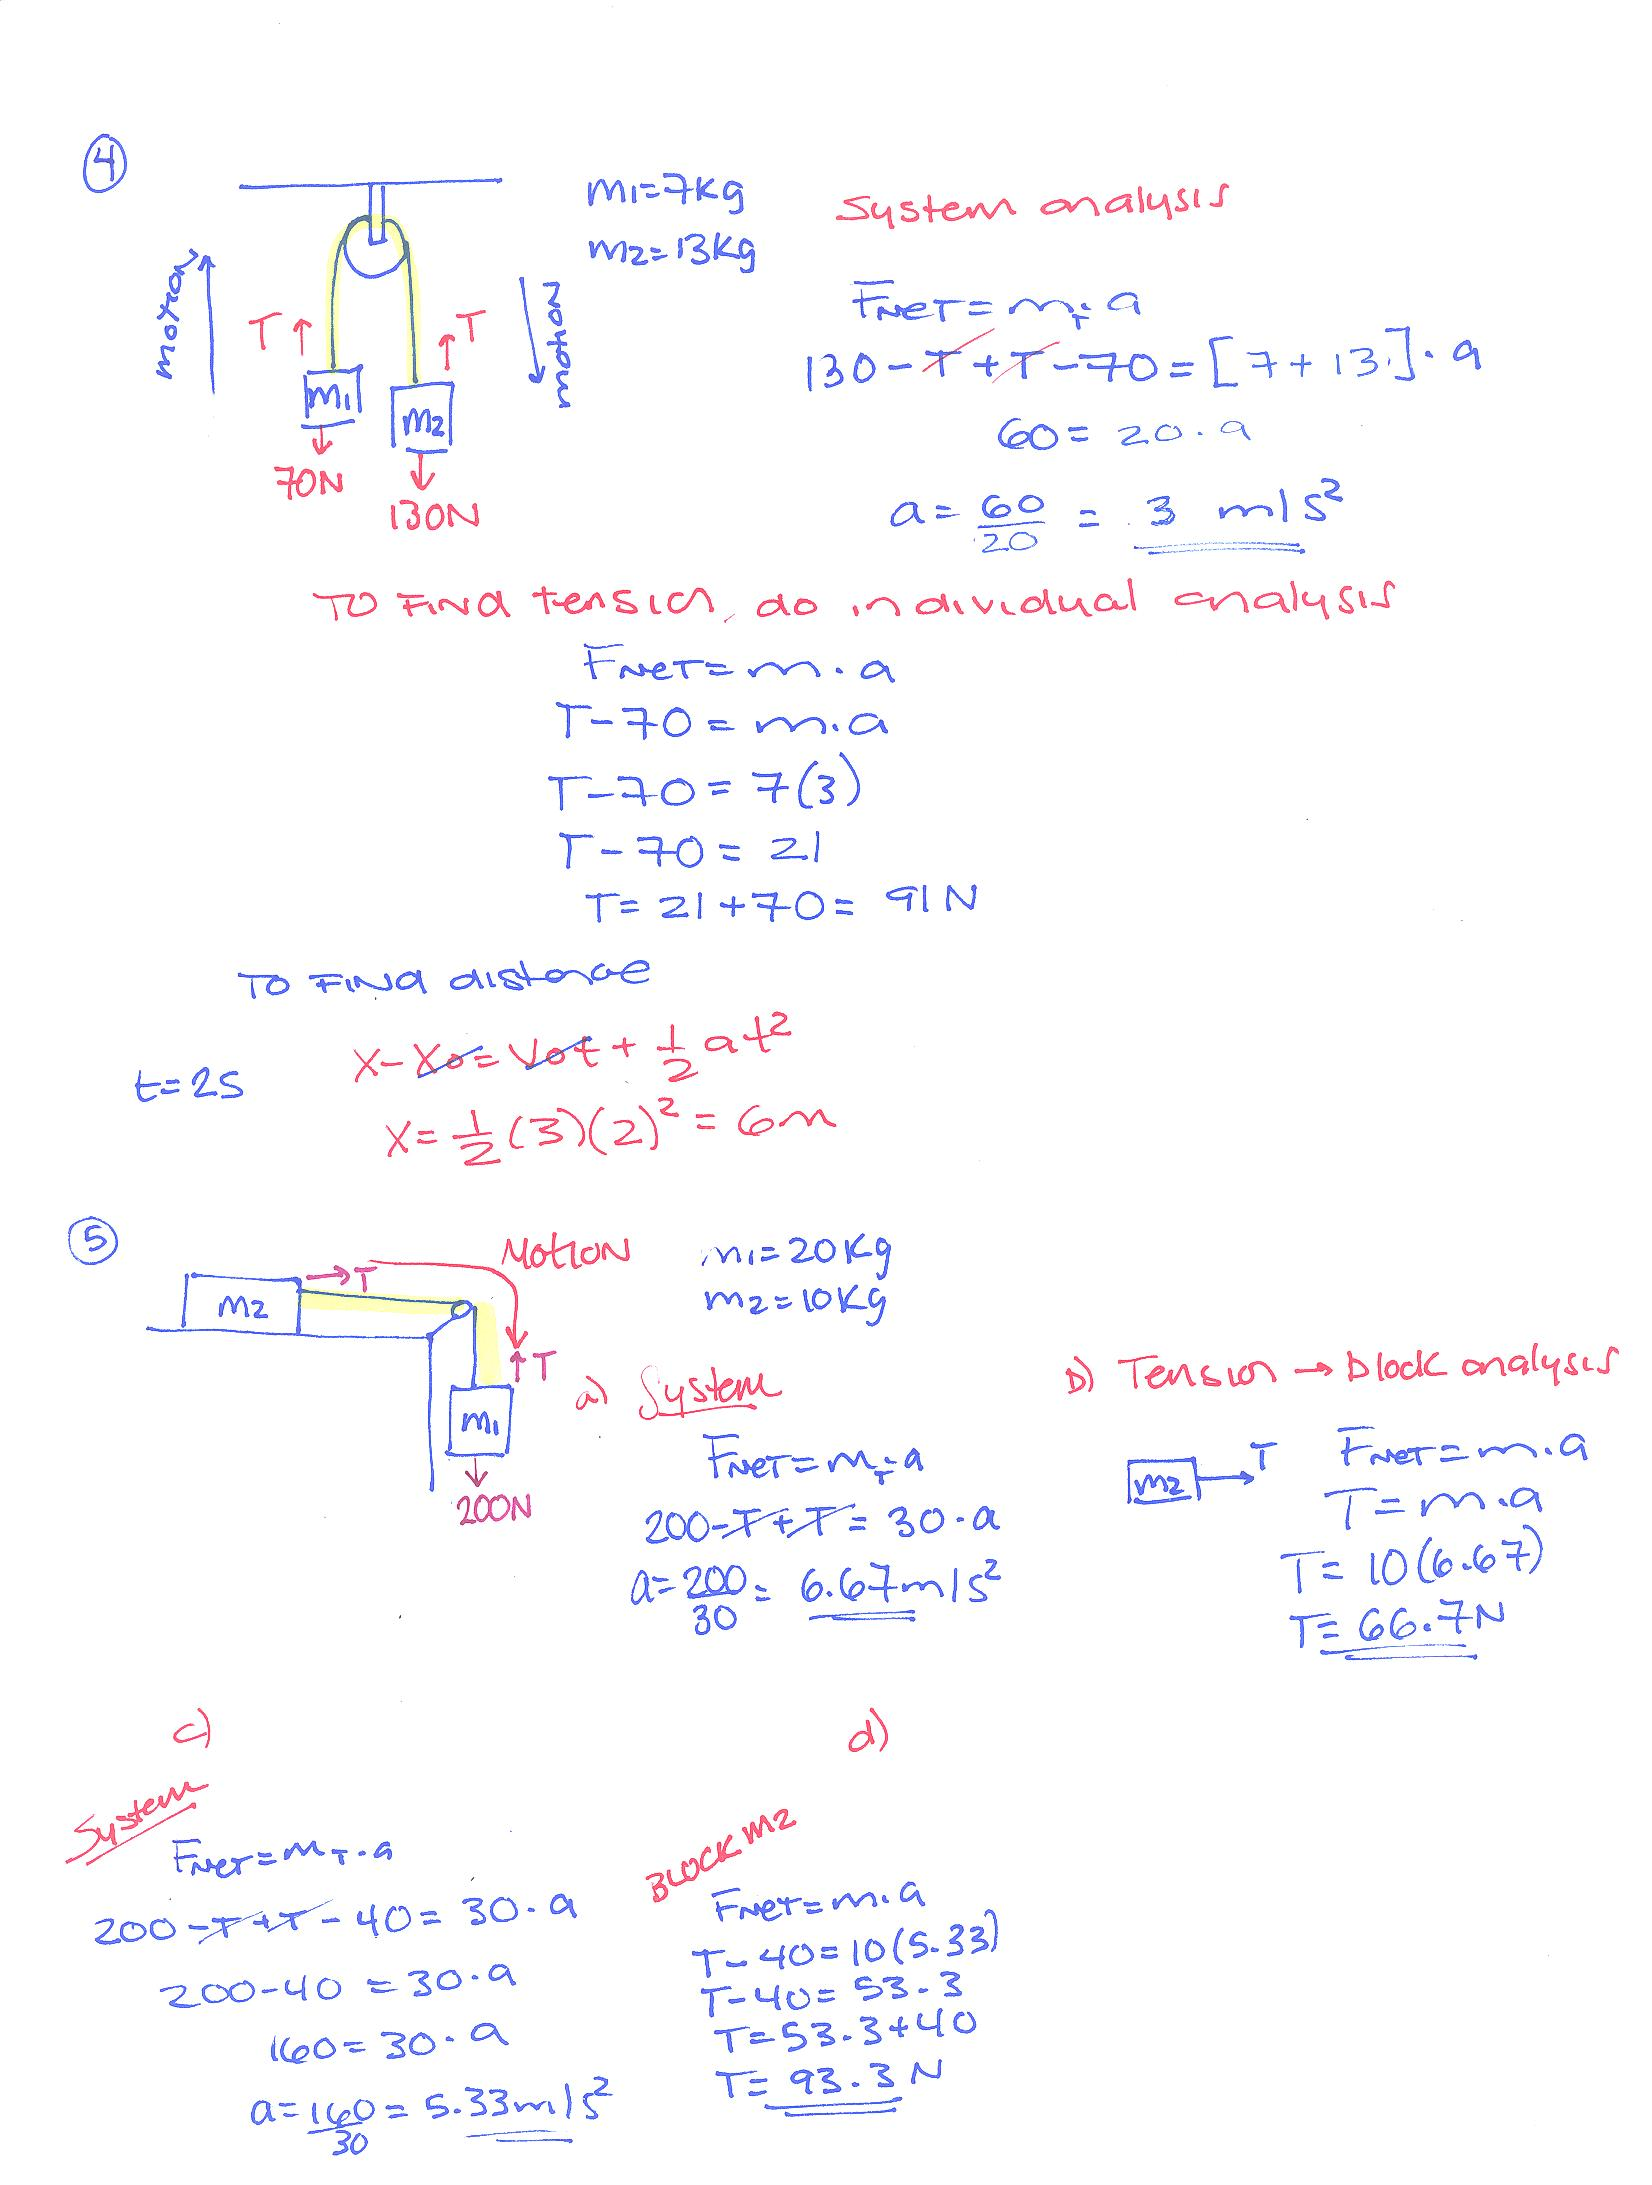 4
m1=7kg
m2=13kg
System analysis
motion
T
T
motion
m1
m2
70N
130N
FNET = mT·a
130-T+T-70=[7+13]·a
60=20·a
a=60/20 = 3 m/s²
TO FIND tension, do individual analysis
FNET=m.a
T-70=m.a
T-70=7(3)
T-70=21
T=21+70=91N
TO FIND distance
t=2s
x-x0=v0t+1/2at²
x=1/2(3)(2)²=6m
5
MOTION
m1=20kg
m2=10kg
m2
T
T
m1
200N
a) System
FNET=mT·a
200-T+T=30·a
a=200/30=6.67m/s²
b) Tension → block analysis
m2
T
FNET=m.a
T=m.a
T=10(6.67)
T=66.7N
c)
System
FNET=mT·a
200-T+T-40=30·a
200-40=30·a
160=30·a
a=160/30=5.33m/s²
d)
BLOCK m2
FNET=m.a
T-40=10(5.33)
T-40=53.3
T=53.3+40
T=93.3N